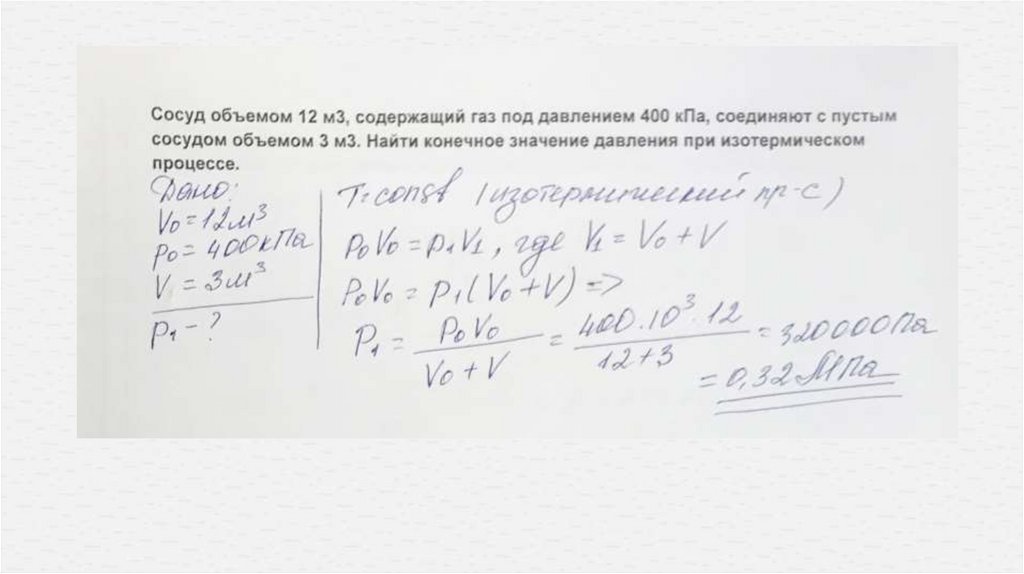 Сосуд объемом 12 м3, содержащий газ под давлением 400 кПа, соединяют с пустым
сосудом объемом 3 м3. Найти конечное значение давления при изотермическом
процессе.
Дано:
V₀ = 12 м³
P₀ = 400 кПа
V = 3 м³
P₁ - ?
T = const (изотермический пр-с)
P₀V₀ = P₁V₁, где V₁ = V₀ + V
P₀V₀ = P₁(V₀ + V) =>
P₁ = P₀V₀ / V₀ + V = 400 · 10³ · 12 / 12 + 3 = 320000 Па
= 0,32 МПа